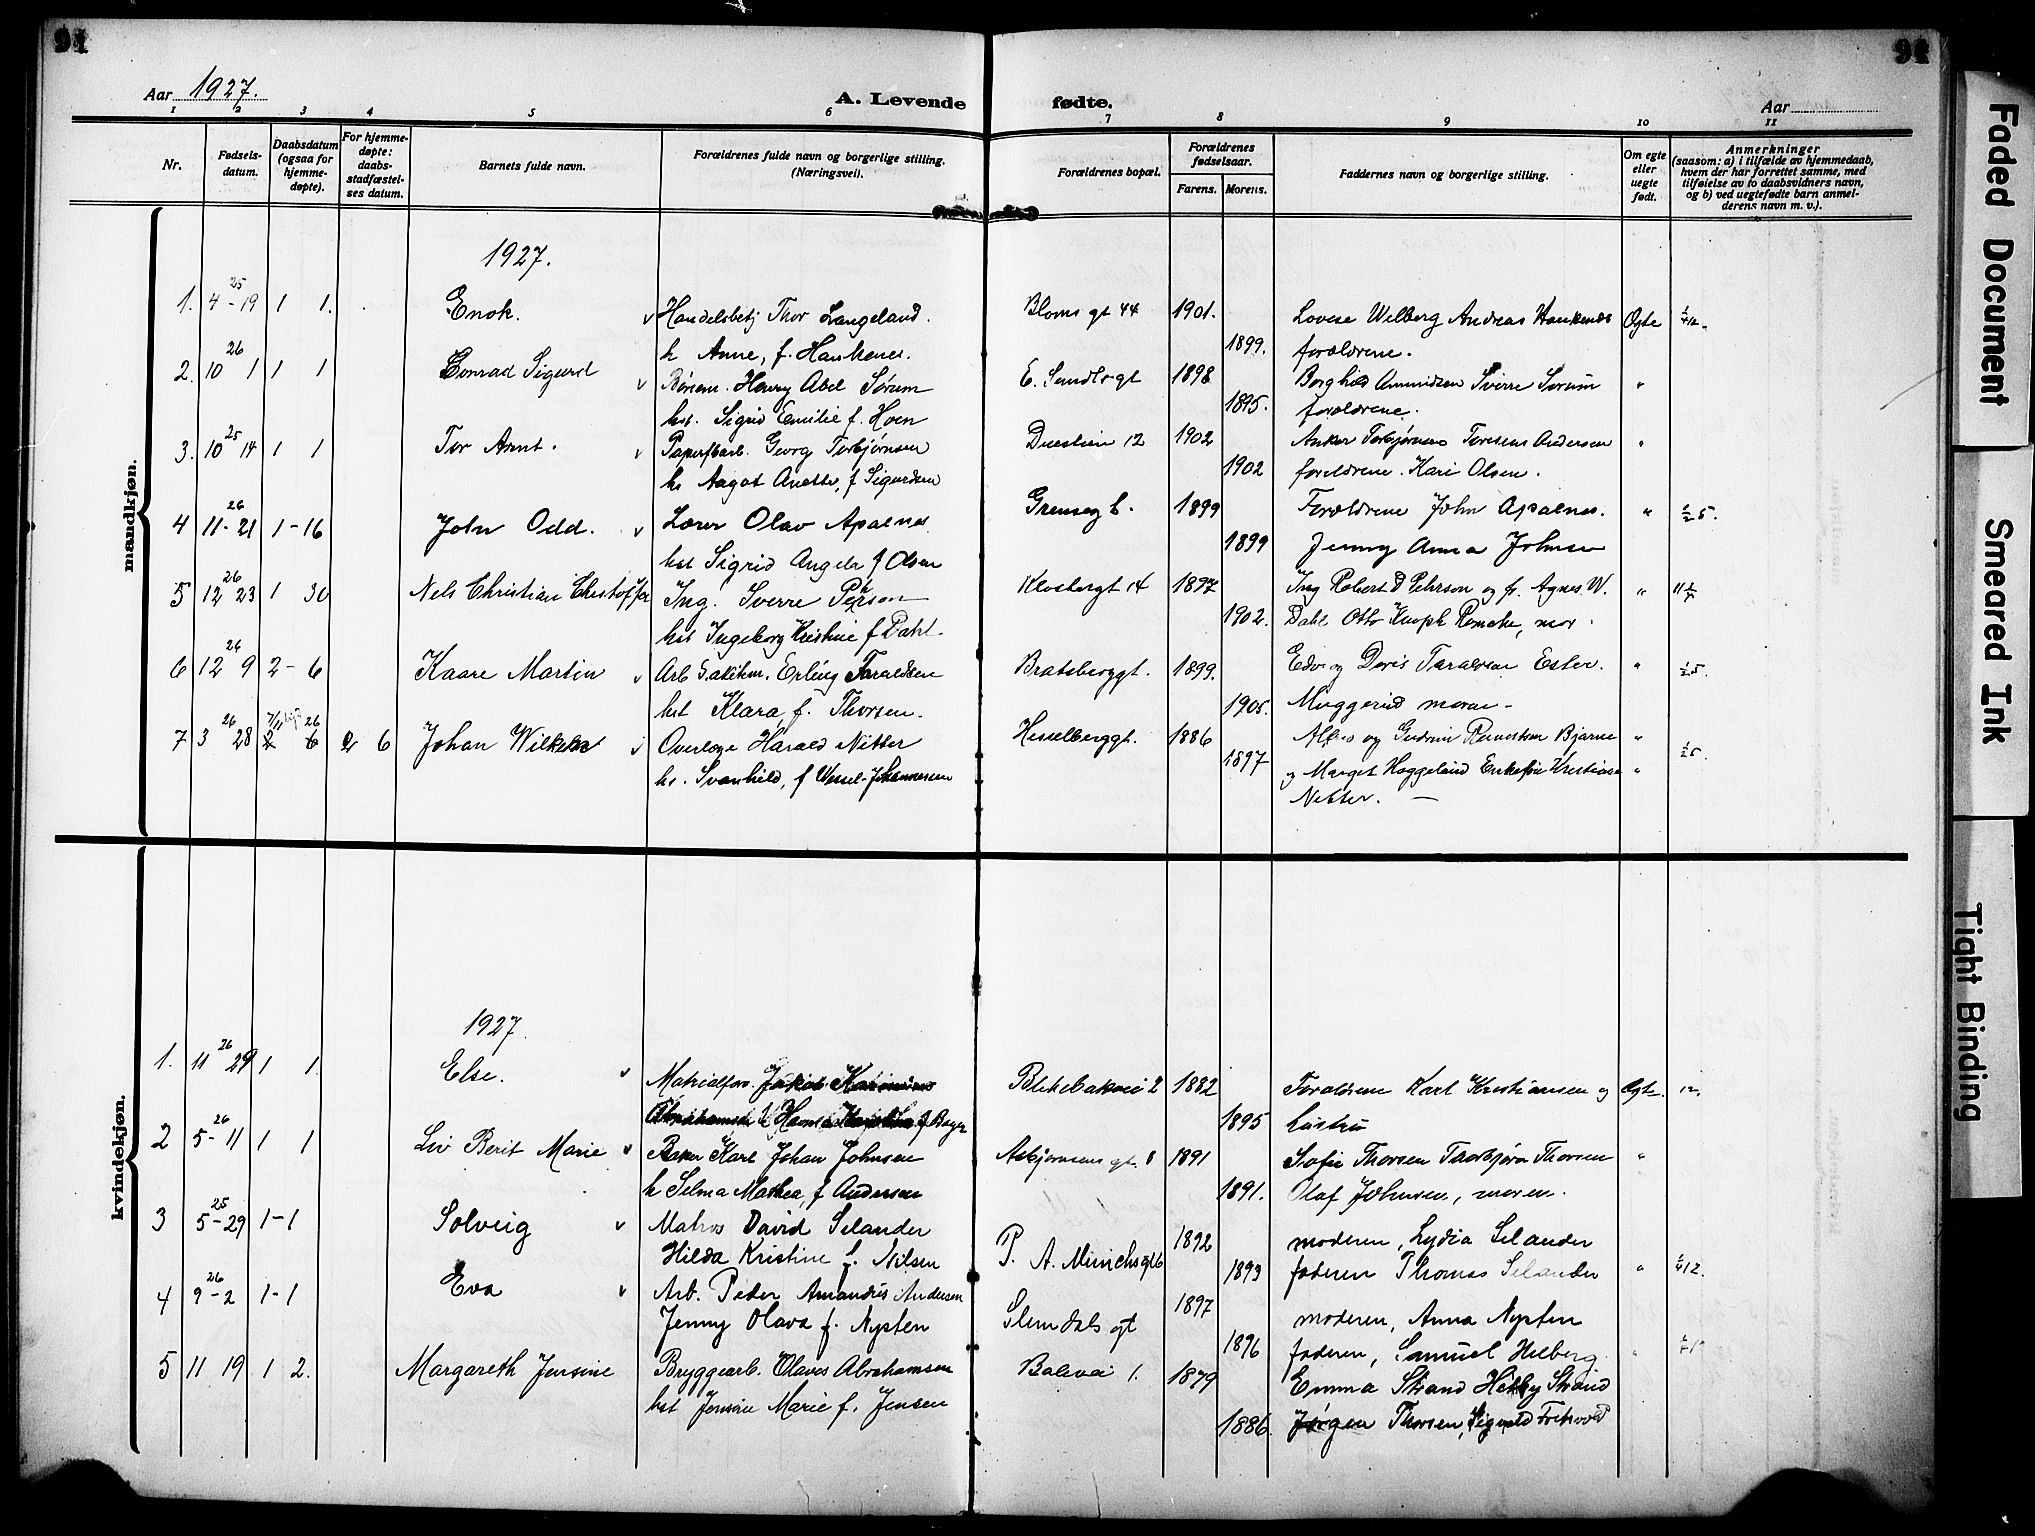 91
91
Aar 1927.
A. Levende fødte.
Aar
1 2 3 4 5 6 7 8 9 10 11
Nr.
Fødsels-
datum.
Daabsdatum
(ogsaa for
hjemme-
døpte).
For hjemme-
døpte:
daabs-
stadfæstel-
ses datum.
Barnets fulde navn.
Forældrenes fulde navn og borgerlige stilling.
(Næringsvei).
Forældrenes bopæl.
Forældrenes
fødselsaar.
Farens. Morens.
Faddernes navn og borgerlige stilling.
Om egte
eller
uegte
født.
Anmerkninger
(saasom: a) i tilfælde av hjemmedaab,
hvem der har forrettet samme, med
tilføielse av to daabsvidners navn,
og b) ved uegtefødte barn anmel-
derens navn m. v.).
mandkjøn.
1927.
1. 4 25 - 19 1 1. Enok. v Handelsbetj Thor Langeland. Bloms gt 44 1901. Lovise Welberg Andreas Haukenes Egte
h Anne, f. Haukenes. 1899. forældrene.
2. 10 26 1 1 1 Conrad Sigurd v Henry Abel Sørum E. Sundts gt 1898 Borghild Amundsen Sverre Sørum "
hst. Sigrid Emilie f. Hoen 1895. forældrene.
3. 10 25 14 1 1 Tor Arnt. v Papirfbarb. Georg Torbjørnsen Duestien 12 1902 Anker Torbjørnsen Andersen "
hs Aagot Anette, f Sigurdsen 1902 foreldrene. Kari Olsen.
4 11 26 - 21 1-16 John Odd. v Lærer Olav Apalnes Grenseg 6. 1899 Forældrene John Apalnes. "
hst Sigrid Angela f Olsen 1899 Jenny Anna Johnsen
5 12 26 23 1 30 Nels Christian Christoffer Ing. Sverre Pehrson Klosbergt 14 1897 Ing Robert D Pehrson og fr. Agnes W. "
hst Ingeborg Kristine f Dahl. 1902. Dahl Otto Knoph Rømcke, mor.
6 12 26 9 2-6 Kaare Martin v Arb Erling Taraldsen Bratsberggt. 1899. og Doris Taraldsen Ester. "
hst Klara, f. Thorsen. 1905. Muggerud moren -
7 3 26 28 2 6 2 6 Johan Wilhelm v Overlæge Harald Nitter Hesselberggt. 1886 og Gudrun Bjarne "
hs. Svanhild, f Wessel-Johannessen 1897 og Margit Haggelund Kristiane "
Nitter. —
kvindekjøn.
1927.
1. 11 26 29 1 1. Else. v Matrialforv. Jakob Blekebakvei 2 1882 Forældrene Karl Kristiansen og Egte.
Abrahamsen 1895
2 5 26 - 11 1 1 Liv Berit Marie v Karl Johan Johnsen Asbjørnsens gt. 8 1891 Sofie Thorsen Thorbjørn Thorsen "
h Selma Mathea, f Andersen 1891. Olaf Johnsen, moren.
3 5 25 - 29 1-1 Solveig v Matros David Selander P. A. Munchsgt 6 1892 moderen, Lydia Selander
Hilda Kristine f. Nilsen 1893 faderen Thomas Selander "
4 9 26 - 2 1-1 Eva v Arb. Peder Amandus Andersen Slemdals gt 1897 moderen, Anna Nysten
Jenny Olava f. Nysten 1896 faderen, Samuel Helberg "
5 11 19 1 2. Margareth Jensine Bryggearb. Olaves Abrahamsen Balevei 1. 1879 Emma Strand Strand
hst Jensine Marie f. Jensen 1886. Jørgen Thorsen, Sigvald
Faded Document
Smeared Ink
Tight Binding